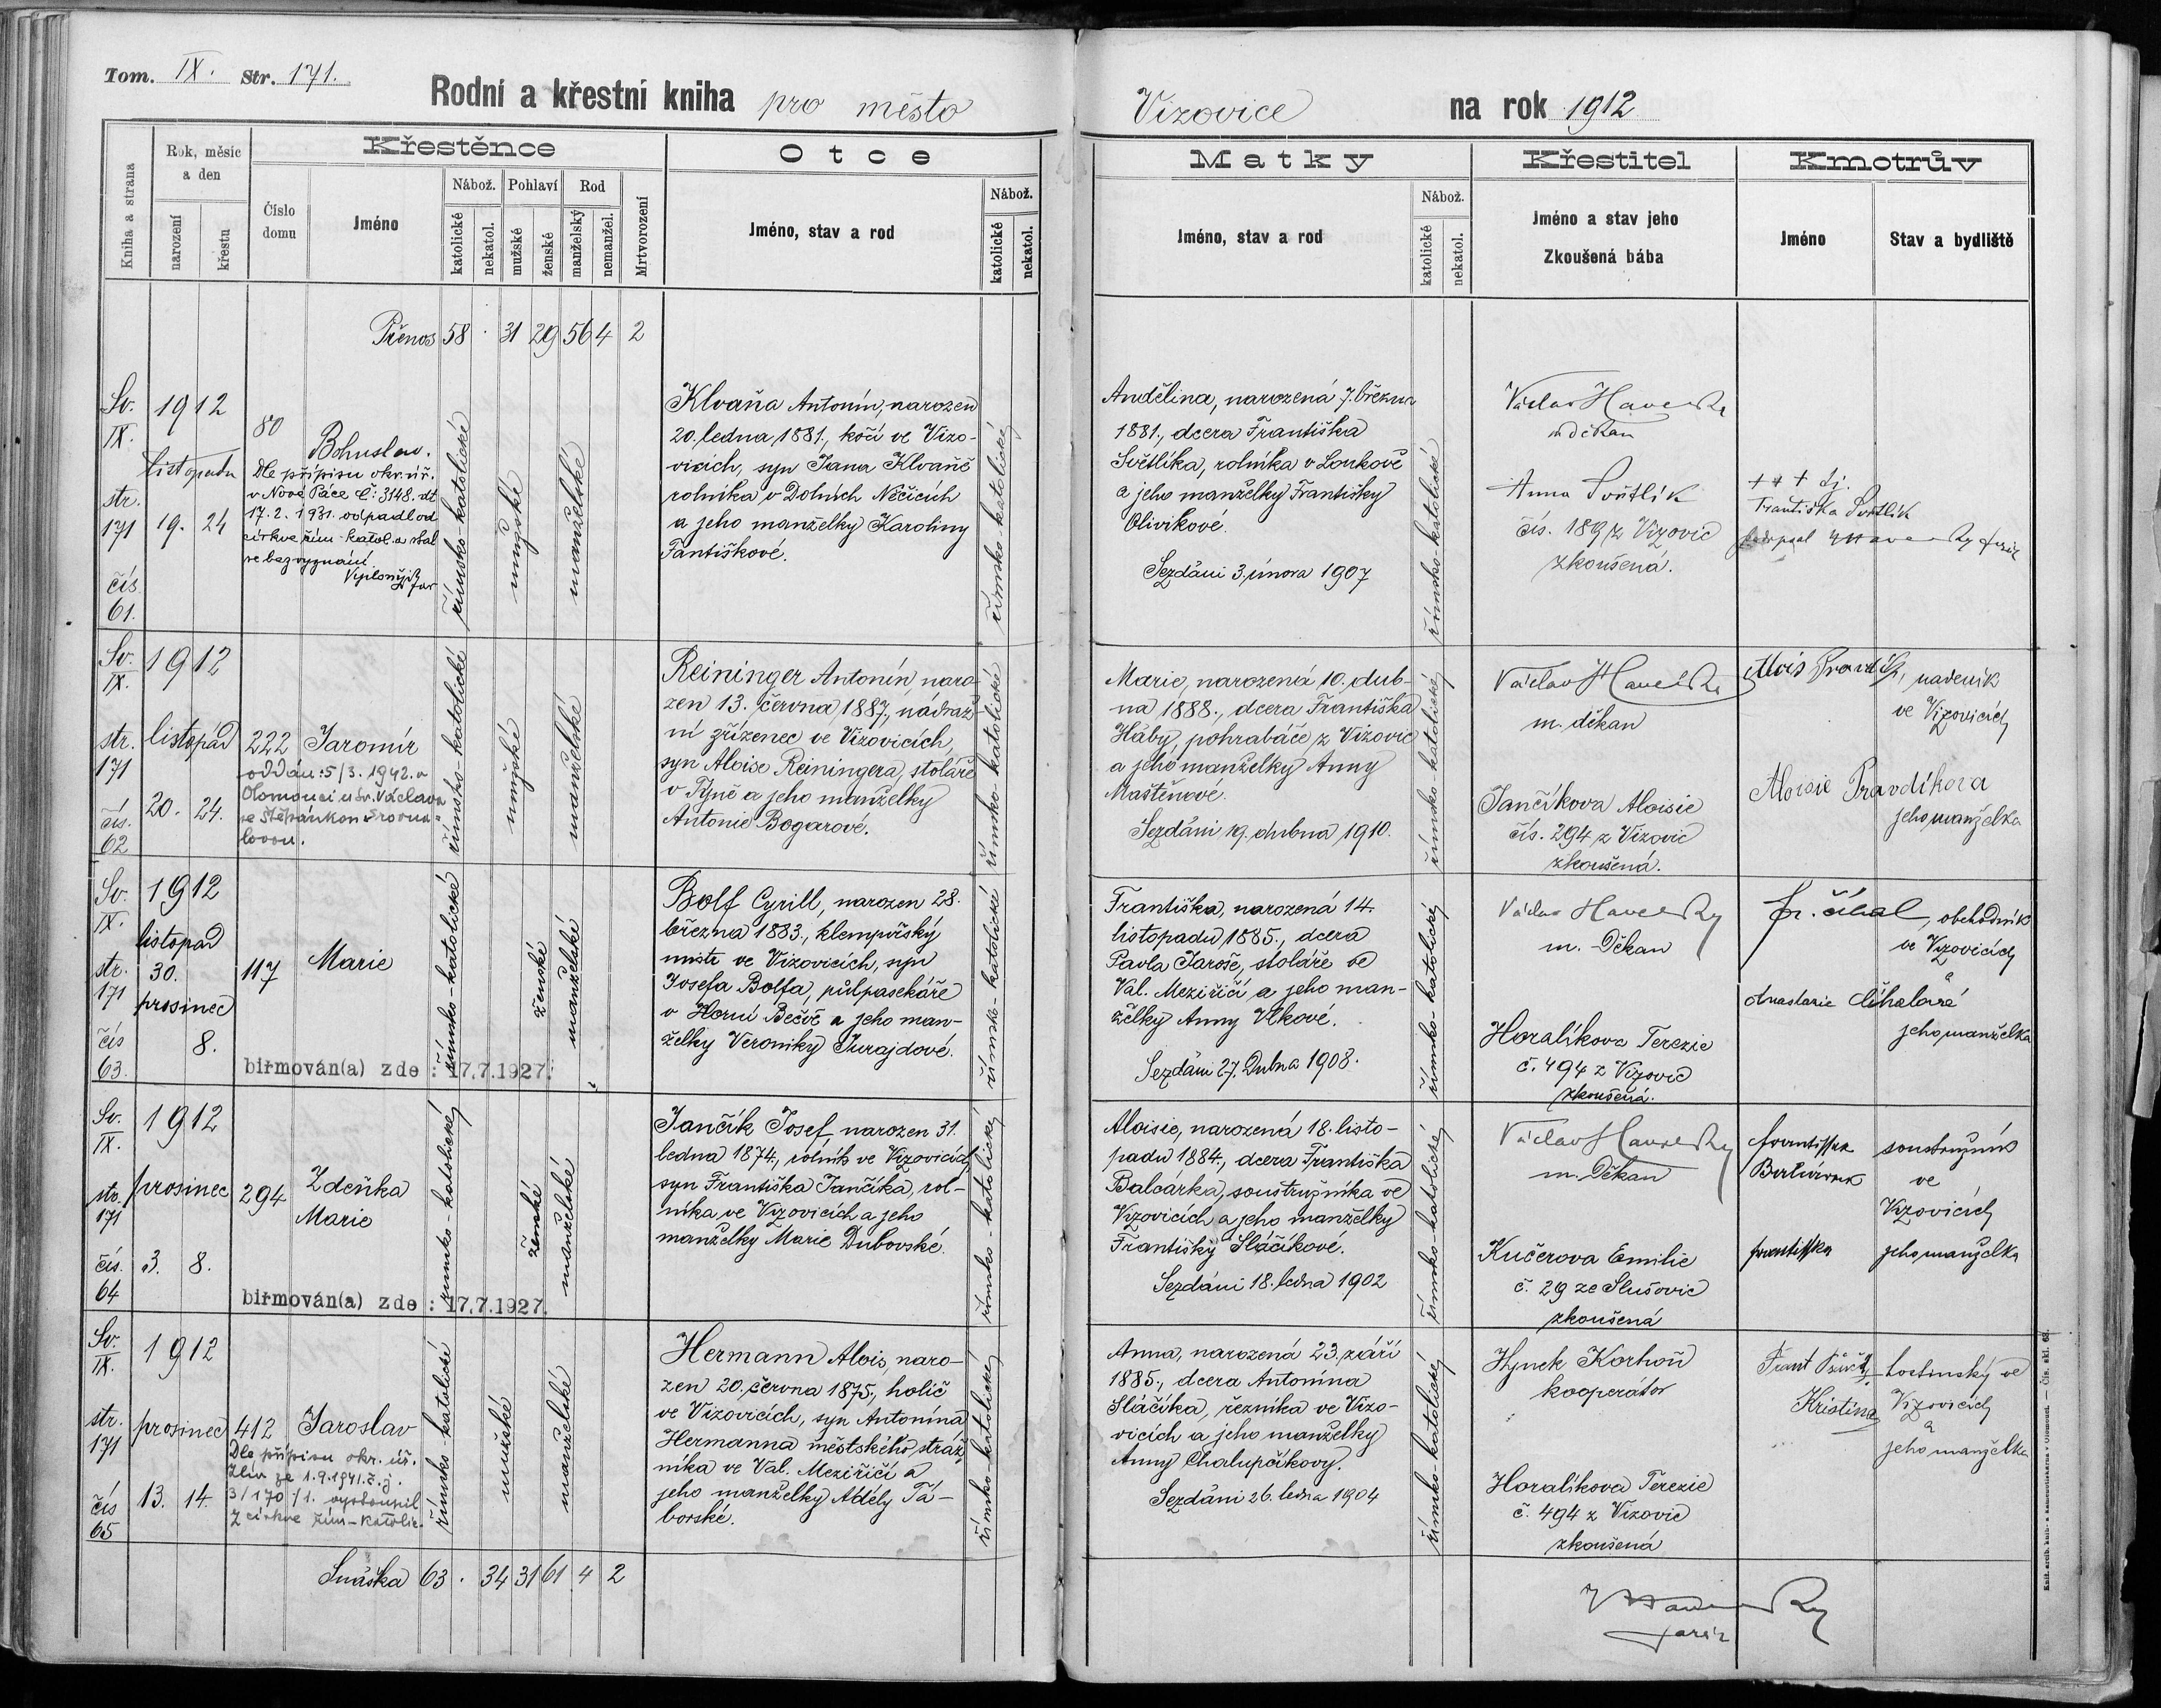 Tom. IX. Str. 171.
Rodní a křestní kniha pro město
Vizovice na rok 1912
Kniha a strana
Rok, měsíc a den
narození
křestu
Křestěnce
Číslo domu
Jméno
Nábož.
katolické
nekatol.
Pohlaví
mužské
ženské
Rod
manželský
nemanžel.
Mrtvorození
Otce
Jméno, stav a rod
Nábož.
katolické
nekatol.
Matky
Jméno, stav a rod
Nábož.
katolické
nekatol.
Křestitel
Jméno a stav jeho
Zkoušená bába
Kmotrův
Jméno
Stav a bydliště
Přenos 58 . 31 29 56 4 2
Sv.
IX.
str.
171
čís.
61.
1912
listopadu
19. 24
80
Bohuslav.
Dle přípisu okr. úř.
v Nové Páce č: 3148. dt
17. 2. 1931. odpadl od
církve řím-katol. a stal
se bez vyznání.
římsko-katolické
mužské
manželské
Klvaňa Antonín, narozen
20. ledna 1881., kočí ve Vizo-
vicích, syn Jana Klvaně
rolníka v Dolních Něčicích
a jeho manželky Karoliny
Fantiškové.
římsko-katolické
Andělina, narozená 7. března
1881., dcera Františka
Světlíka, rolníka v Loukově
a jeho manželky Františky
Olivíkové.
Sezdáni 3. února 1907
římsko-katolické
Václav Havelka
m děkan
Anna Světlík
čís. 189 z Vizovic
zkoušená.
+ + +
Františka Světlík
Sv.
IX.
str.
171
čís.
62
1912
listopád
20. 24.
222 Jaromír
oddán: 5/3. 1942. v
Olomouci u sv. Václava
se Štěpánkou Srovna-
lovou.
římsko-katolické
mužské
manželské
Reininger Antonín, naro-
zen 13. června 1887., nádraž-
ní zřízenec ve Vizovicích,
syn Aloise Reiningera, stoláře
v Týně a jeho manželky
Antonie Bogarové.
římsko-katolické
Marie, narozená 10. dub-
na 1888., dcera Františka
Háby, pohrabáče z Vizovic
a jeho manželky Anny
Maštěnové.
Sezdáni 19. dubna 1910.
římsko-katolické
Václav Havelka
m. děkan
Jančíkova Aloisie
čís. 294 z Vizovic
zkoušená.
Alois Pravdík, nadeník
ve Vizovicích
Aloisie Pravdíkova
jeho manželka
Sv.
IX.
str.
171
čís
63.
1912
listopad
30.
prosinec
8.
117 Marie
biřmován(a) zde : 17.7.1927.
římsko-katolické
ženské
manželské
Bolf Cyrill, narozen 28.
března 1883., klempířský
mistr ve Vizovicích, syn
Josefa Bolfa, půlpasekáře
v Horní Bečvě a jeho man-
želky Veroniky Jurajdové.
římsk-katolické
Františka, narozená 14.
listopadu 1885., dcera
Pavla Jaroše, stoláře ve
Val. Meziříčí a jeho man-
želky Anny Vlkové.
Sezdáni 27. Dubna 1908.
římsko-katolické
Václav Havelka
m. Děkan
Horalíkova Terezie
č. 494 z Vizovic
zkoušená.
fr. číhal, obchodník
ve Vizovicích
a
Anastazie číhalova
jeho manželka
Sv.
IX.
str.
171
čís.
64
1912
prosinec
3. 8.
294
Zdeňka
Marie
biřmován(a) zde : 17.7.1927.
římsko-katolické
ženské
manželské
Jančík Josef, narozen 31.
ledna 1874., rolník ve Vizovicích,
syn Františka Jančíka, rol-
níka ve Vizovicích a jeho
manželky Marie Dubovské.
římsko-katolické
Aloisie, narozená 18. listo-
padu 1884., dcera Františka
Balcárka, soustružníka ve
Vizovicích a jeho manželky
Františky Sláčíkové.
Sezdáni 18. ledna 1902
římsko-katolické
Václav Havelka
m. Děkan
Kučerova Emilie
č. 29 ze Slušovic
zkoušená
soustružník
ve
Vizovicích
Františka jeho manželka
Sv.
IX.
str.
171
čís
65
1912
prosinec
13. 14.
412 Jaroslav
Dle přípisu okr. úř.
Zlín ze 1.9.1941. č.j.
3/170/1. vystoupil
z církve řím-katolic.
římsko-katolické
mužské
manželské
Hermann Alois, naro-
zen 20. června 1875., holič
ve Vizovicích, syn Antonína
Hermanna městského stráž-
níka ve Val. Meziříčí a
jeho manželky Adély Tá-
borské.
římsko-katolické
Anna, narozená 23. září
1885., dcera Antonína
Sláčíka, řezníka ve Vizo-
vicích a jeho manželky
Anny Chalupčíkovy.
Sezdáni 26. ledna 1904
římsko-katolické
Hynek Korhoň
kooperátor
Horalíkova Terezie
č. 494 z Vizovic
zkoušená
Frant
Kristina
hostinský ve
Vizovicích
a
jeho manželka
Snáška 63 . 34 31 61 4 2
farář